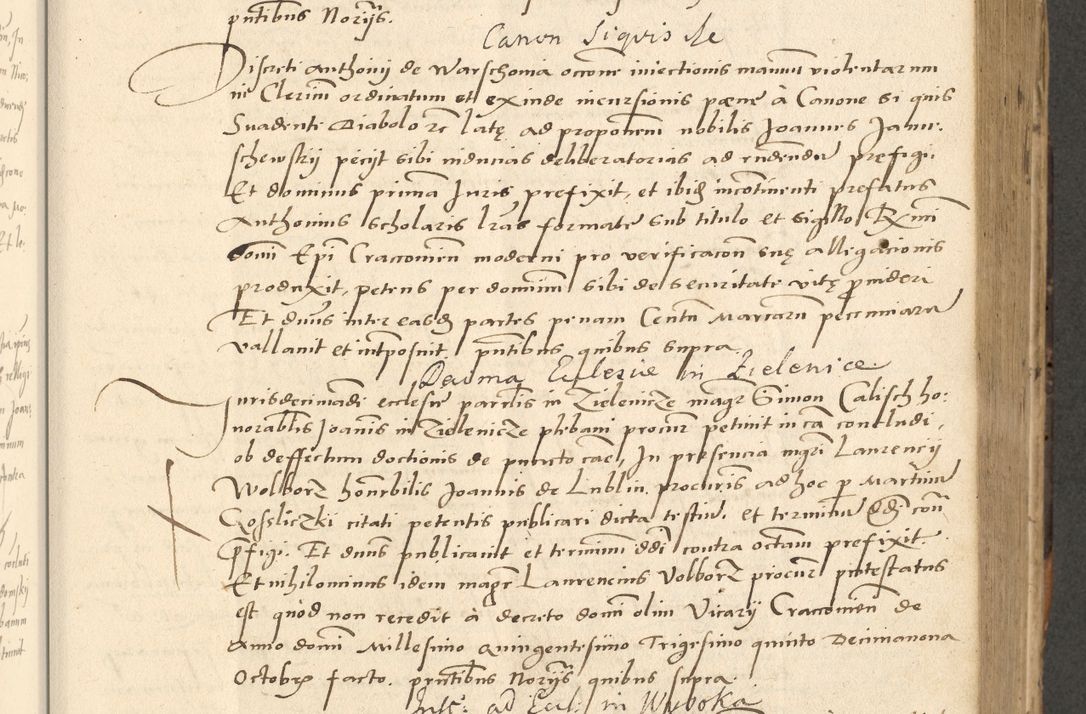 pntibus Norijs.
Canon Siquis de
Discreti Anthonij de Warschouia occone iniectionis manuu violentarum
in Clericu ordinatum et exinde incursionis pœne à Canone si quis
Suadente Diabolo rc latę ad proponem nobilis Joannes Janu-
schewskij pecijt sibi inducias deliberatorias ad rndendu prefigi.
Et dominus primā Juris prefixit, et ibiđ incontinenti prefatus
Anthonius scholaris lras formate sub titulo et sigillo Rmi
domi Epi Craccouien moderni pro verificacon suę alligacionis
produxit, petens per dominu sibi de securitate vitę prouideri
Et duus inter easđ partes penam Centu Marcaru peccuniaru
vallauit et interposuit, pntibus quibus supra.
Decima Ecclesie in Zielenice
Juris decimandi ecclesie parchlis in Zielenicze magr Simon Calisch ho-
norablis Joannis in Zielenicze plebani procur petiuit in ca concludi,
ob deffectum doctionis de puncto cae, In presencia mgri Laurencij
Wolborz honrbilis Joannis de Lublin procuris ad hoc p Martinu
Gosliczki citati petentis publicari dicta testiu. et terminu ddi con
pfigi. Et duus publicauit et terminu ddi contra octam prefixit
Et nihilominus idem magr Laurencius Volborz procur protestatus
est quod non recedit à decreto domi olim Vicarij Craccouien de
Anno domi Millesimo Quingentesimo Trigesimo quinto Decimanona
Octobr facto. prntibus Norijs quibus supra